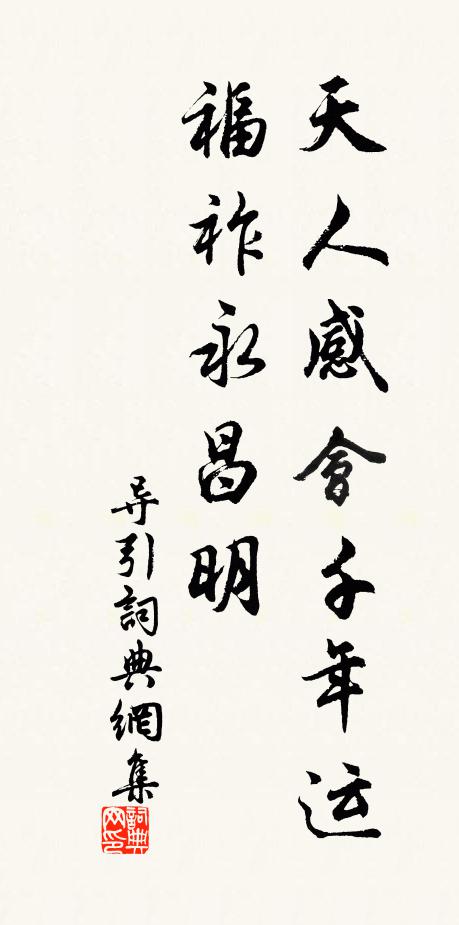 天人感會千年运
福祚永昌明
导引詞典網集
詞典网印